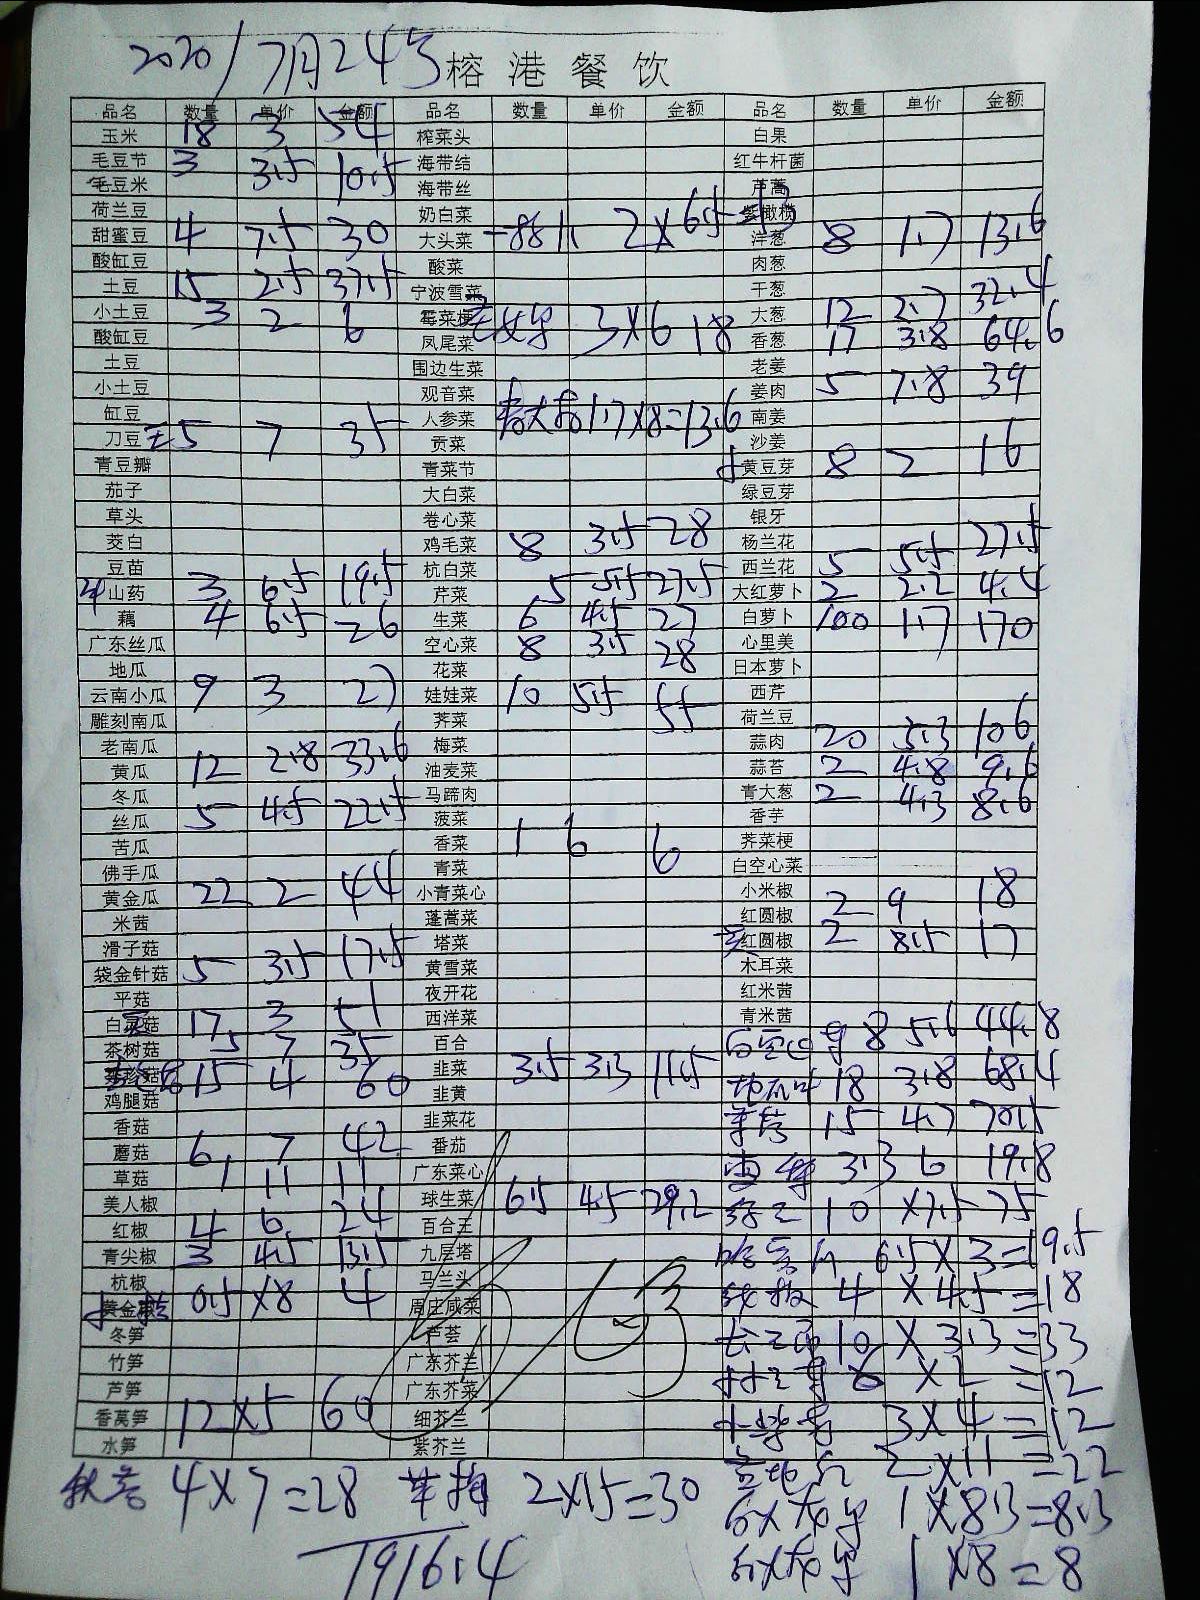 2020/7月24号 榕港餐饮
品名 数量 单价 金额 品名 数量 单价 金额 品名 数量 单价 金额
玉米 18 3 54 榨菜头 白果
毛豆节 3 3.5 10.5 海带结 红牛杆菌
毛豆米 海带丝 芦蒿
荷兰豆 奶白菜 紫橄榄
甜蜜豆 4 7.5 30 大头菜 2×6.5=13 洋葱 8 1.7 13.6
酸缸豆 酸菜 肉葱
土豆 15 2.5 37.5 宁波雪菜 干葱
小土豆 3 2 6 霉菜梗 3×6 18 大葱 12 2.7 32.4
酸缸豆 凤尾菜 香葱 17 3.8 64.6
土豆 围边生菜 老姜
小土豆 观音菜 姜肉 5 7.8 39
缸豆 人参菜 1.7×8=13.6 南姜
刀豆 5 7 35 贡菜 沙姜
青豆瓣 青菜节 黄豆芽 8 2 16
茄子 大白菜 绿豆芽
草头 卷心菜 银牙
茭白 鸡毛菜 8 3.5 28 杨兰花
豆苗 杭白菜 西兰花 5 5.5 27.5
山药 3 6.5 19.5 芹菜 5 5.5 27.5 大红萝卜 2 2.2 4.4
藕 4 6.5 26 生菜 6 4.5 27 白萝卜 100 1.7 170
广东丝瓜 空心菜 8 3.5 28 心里美
地瓜 花菜 日本萝卜
云南小瓜 9 3 27 娃娃菜 10 5.5 55 西芹
雕刻南瓜 荠菜 荷兰豆
老南瓜 梅菜 蒜肉 20 5.3 106
黄瓜 12 2.8 33.6 油麦菜 蒜苔 2 4.8 9.6
冬瓜 马蹄肉 青大葱 2 4.3 8.6
丝瓜 5 4.5 22.5 菠菜 香芋
苦瓜 香菜 1 6 6 荠菜梗
佛手瓜 青菜 白空心菜
黄金瓜 22 2 44 小青菜心 小米椒 2 9 18
米茜 蓬蒿菜 红圆椒
滑子菇 塔菜 红圆椒 2 8.5 17
袋金针菇 5 3.5 17.5 黄雪菜 木耳菜
平菇 夜开花 红米茜
白灵菇 17 3 51 西洋菜 青米茜
茶树菇 5 7 35 百合 8 5.6 44.8
15 4 60 韭菜 3.5 3.3 11.5 地瓜叶 18 3.8 68.4
鸡腿菇 韭黄
香菇 韭菜花 15 4.7 70.5
蘑菇 6 7 42 番茄
草菇 1 11 11 广东菜心 3.3 6 19.8
美人椒 球生菜 6.5 4.5 29.2 10 ×7.5 75
红椒 4 6 24 百合王
青尖椒 3 4.5 13.5 九层塔 6.5×3=19.5
杭椒 马兰头
黄金椒 0.5×8 4 周庄咸菜 4×4.5=18
冬笋 芦荟 10×3.3=33
竹笋 广东芥兰
芦笋 广东芥菜 6×2=12
香莴笋 12×5 60 细芥兰 3×4=12
水笋 紫芥兰
4×7=28 2×15=30 2×11=22
1×8.3=8.3
1916.4 1×8=8